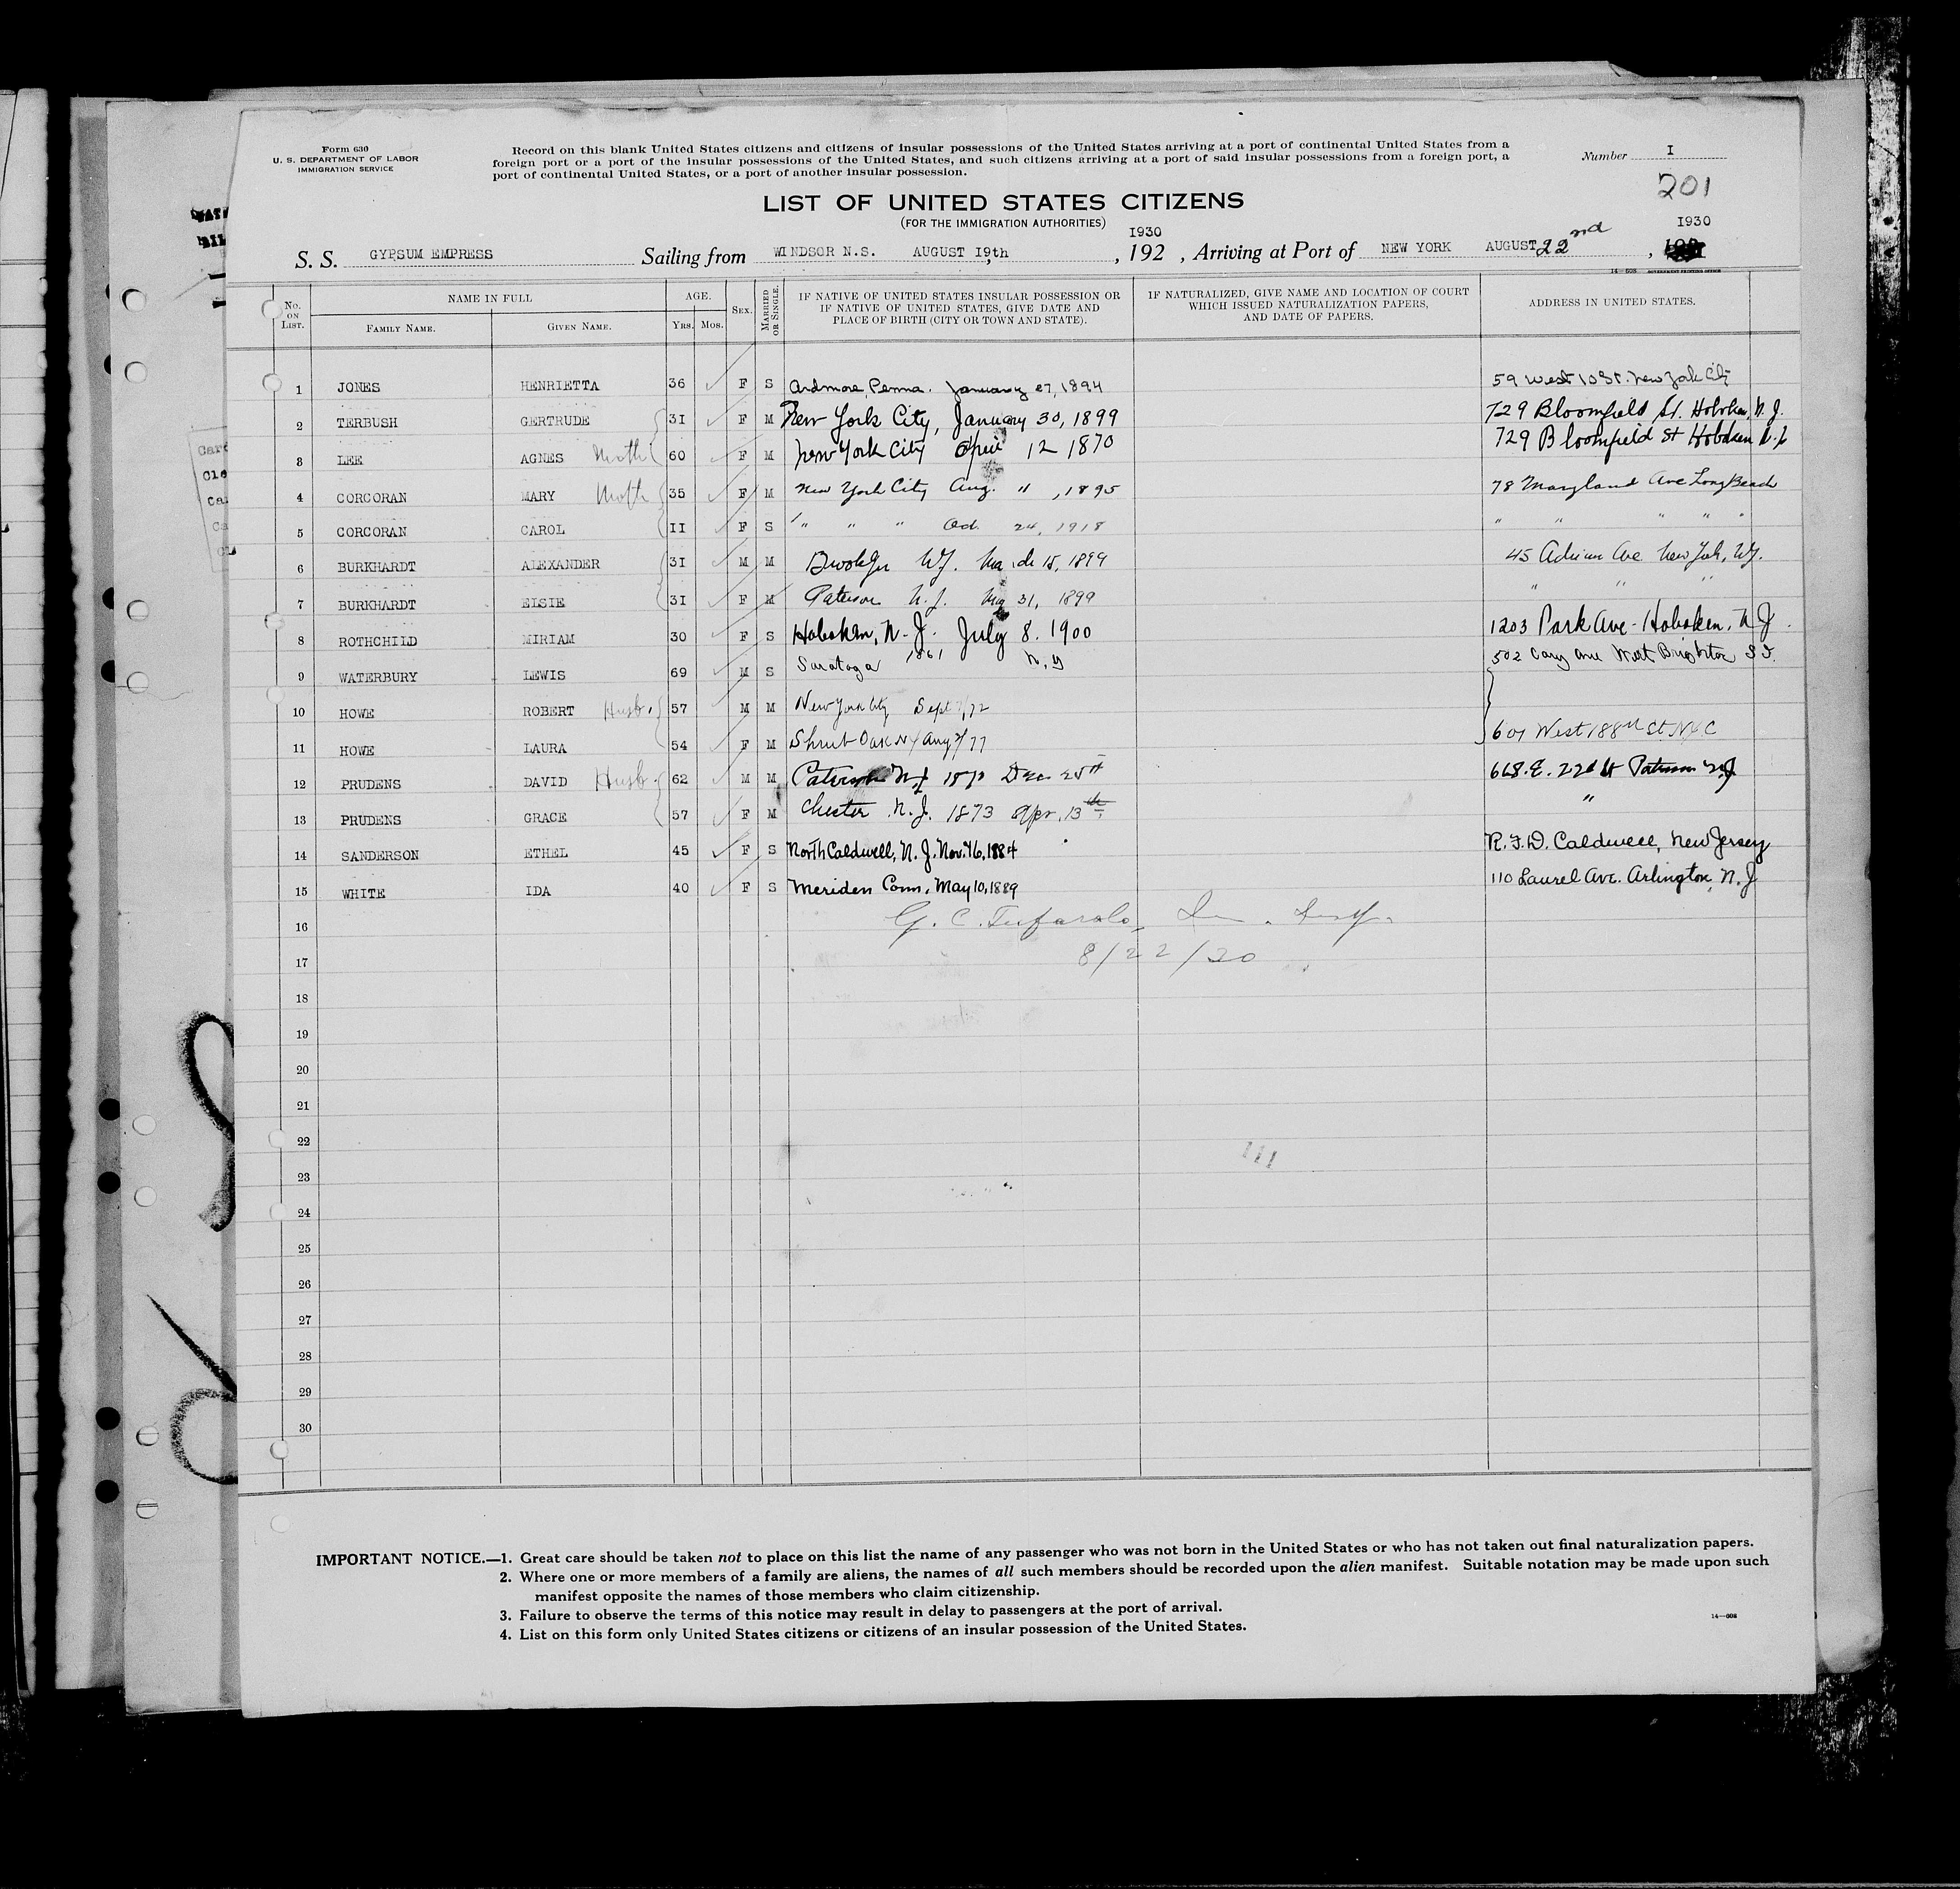 Form 630
U. S. DEPARTMENT OF LABOR
IMMIGRATION SERVICE
Record on this blank United States citizens and citizens of insular possessions of the United States arriving at a port of continental United States from a
foreign port or a port of the insular possessions of the United States, and such citizens arriving at a port of said insular possessions from a foreign port, a
port of continental United States, or a port of another insular possession.
Number I
201
LIST OF UNITED STATES CITIZENS
(FOR THE IMMIGRATION AUTHORITIES)
1930 1930
S. S. GYPSUM EMPRESS Sailing from WINDSOR N.S. AUGUST I9th, , 192 , Arriving at Port of NEW YORK AUGUST 22nd ,
14—608 GOVERNMENT PRINTING OFFICE
No. ON LIST. NAME IN FULL AGE. SEX. MARRIED OR SINGLE. IF NATIVE OF UNITED STATES INSULAR POSSESSION OR IF NATIVE OF UNITED STATES, GIVE DATE AND PLACE OF BIRTH (CITY OR TOWN AND STATE). IF NATURALIZED, GIVE NAME AND LOCATION OF COURT WHICH ISSUED NATURALIZATION PAPERS, AND DATE OF PAPERS. ADDRESS IN UNITED STATES.
FAMILY NAME. GIVEN NAME. YRS. MOS.
1 JONES HENRIETTA 36 F S Ardmore, Penna. January 27, 1894 59 West 10 St. New York City
2 TERBUSH GERTRUDE 3I F M New York City, January 30, 1899 729 Bloomfield St. Hoboken, N. J.
3 LEE AGNES Moth 60 F M New York City April 12 1870 729 Bloomfield St Hoboken N.J
4 CORCORAN MARY Moth 35 F M New York City Aug. " , 1895 78 Maryland Ave Long Beach
5 CORCORAN CAROL II F S " " " Oct. 24, 1918 " " " " "
6 BURKHARDT ALEXANDER 3I M M Brooklyn NY. March 15, 1899 45 Adrian Ave New York, NY.
7 BURKHARDT ELSIE 3I F M Paterson N.J. May 31, 1899 " " "
8 ROTHCHILD MIRIAM 30 F S Hoboken, N. J. July 8. 1900 1203 Park Ave - Hoboken, N J.
9 WATERBURY LEWIS 69 M S Saratoga 1861 N, Y 502 Cary Ave West Brighton S I.
10 HOWE ROBERT Husb. 57 M M New York City Sept /72
11 HOWE LAURA 54 F M Shrub Oak NY Aug /77 601 West 188th St. NYC
12 PRUDENS DAVID Husb. 62 M M Paterson N J Dec 25th 668. E. 22d St Paterson N.J
13 PRUDENS GRACE 57 F M Chester N. J. 1873 Apr. 13th "
14 SANDERSON ETHEL 45 F S North Caldwell, N. J. Nov. 16, 1884 R. F. D. Caldwell, New Jersey
15 WHITE IDA 40 F S Meriden Conn. May 10, 1889 110 Laurel Ave. Arlington, N. J
16 G. C. Tufarolo,
17 8/22/30
18
19
20
21
22
23
24
25
26
27
28
29
30
IMPORTANT NOTICE.—1. Great care should be taken not to place on this list the name of any passenger who was not born in the United States or who has not taken out final naturalization papers.
2. Where one or more members of a family are aliens, the names of all such members should be recorded upon the alien manifest. Suitable notation may be made upon such
manifest opposite the names of those members who claim citizenship.
3. Failure to observe the terms of this notice may result in delay to passengers at the port of arrival.
4. List on this form only United States citizens or citizens of an insular possession of the United States.
14—608